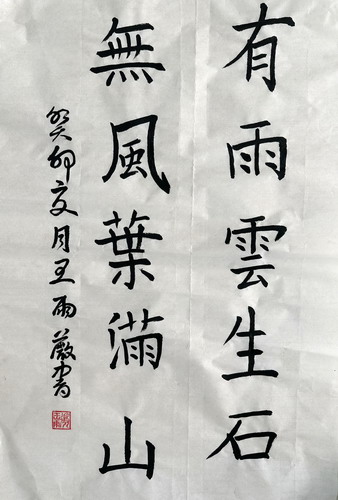 有雨雲生石
無風葉滿山
癸卯亥月王雨薇書